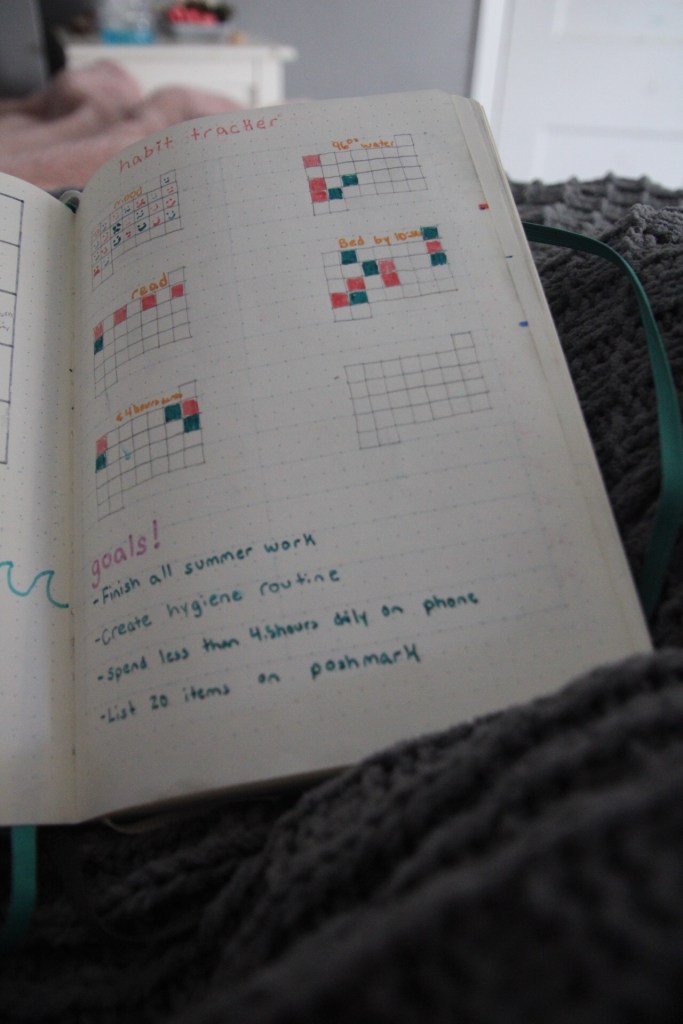 habit tracker
mood
read
goals!
-Finish all summer work
-Create hygiene routine
-Spend less than 4.5hours daily on phone
-List 20 items on poshmark
water
Bed by